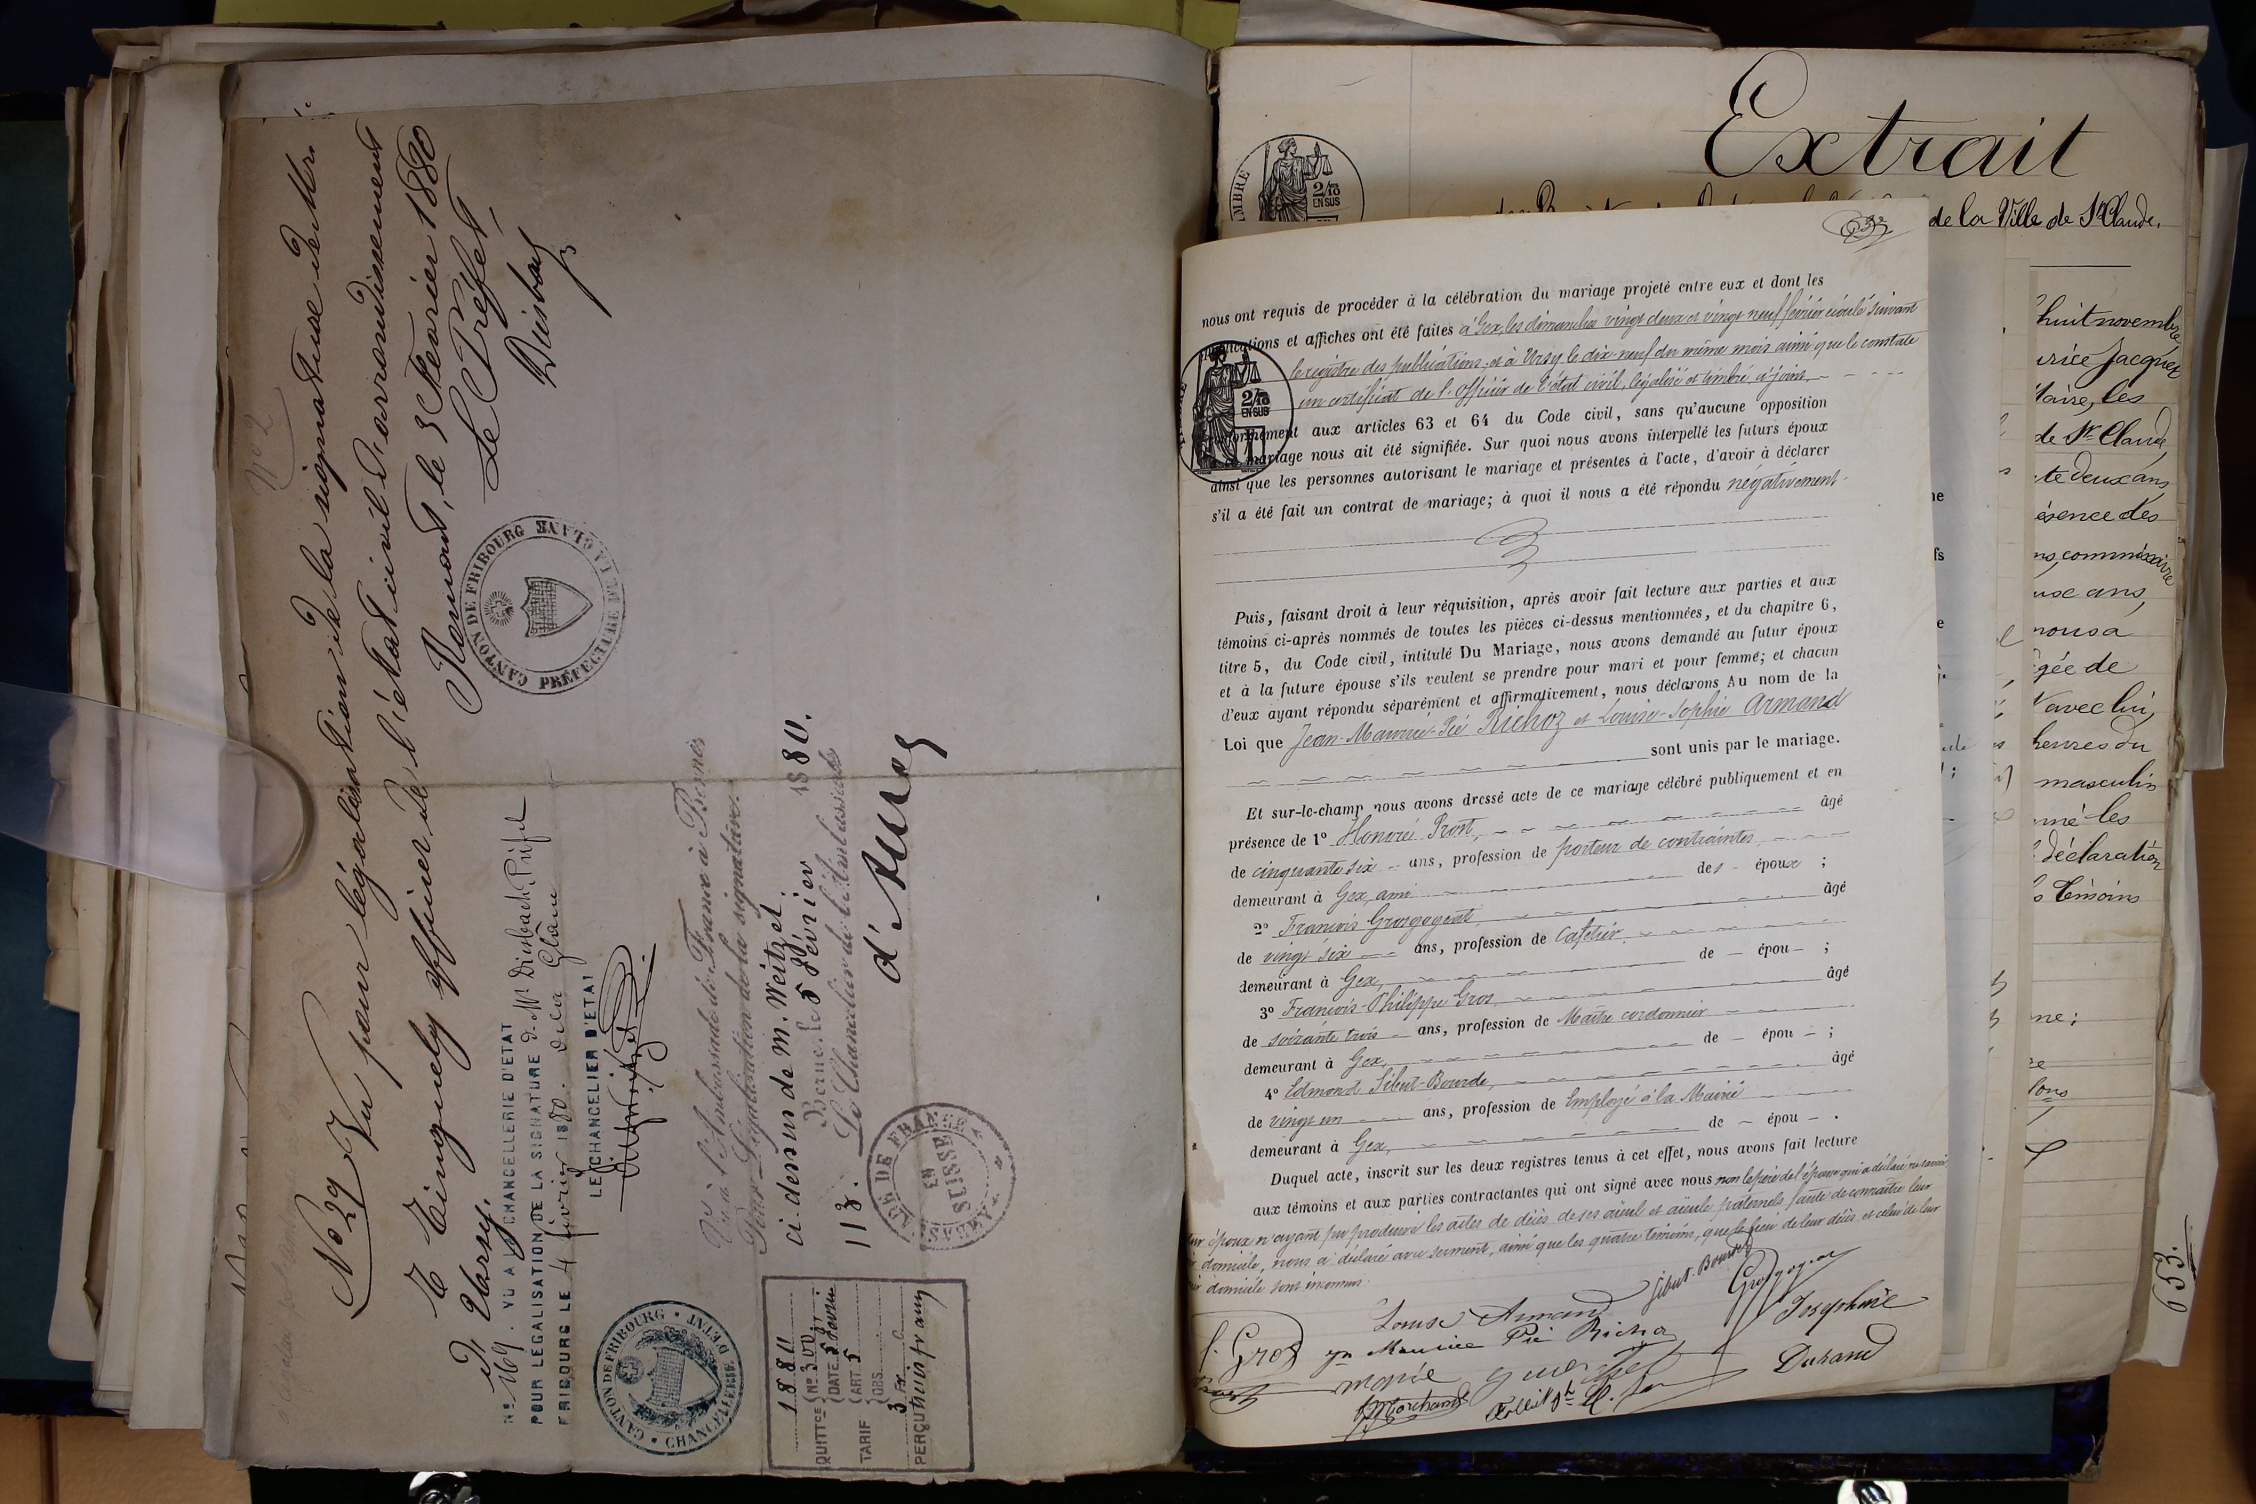 No 2
No 29 Vu pour légalisation de la signature de Mr.
officier de l'état civil d'arrondissement
d'Ursy.
Romont, le 3 Février 1880
Le Préfet
CANTON DE FRIBOURG
PRÉFECTURE DE LA GLANE
No 169. VU A CHANCELLERIE D'ETAT
POUR LEGALISATION DE LA SIGNATURE de Mr Diesbach Préfet
FRIBOURG LE 4 février 1880. de la Glâne
LE CHANCELIER D'ETAT
CANTON DE FRIBOURG
CHANCELLERIE D'ETAT
Vu à l'Ambassade de France à Berne
Pour Légalisation de la signature
ci-dessus de M. Weitzel
Berne, le 5 Février 1880.
Le Chancelier de l'Ambassade
113.
EN SUISSE
1880
QUITTCE No 300
DATE 5 février
TARIF ART. 5
OBS.
PERÇU
Extrait
de la Ville de St Claude.
2/10
EN SUS
huit novembre
Jacquex
Maire, les
de St Claude
te deux ans
ésence des
ns, commissaire
ans,
nous a
gée de
avec lui,
heures du
masculin
né les
déclaration
témoins
653.
nous ont requis de procéder à la célébration du mariage projeté entre eux et dont les
publications et affiches ont été faites à Gex, les dimanches vingt deux et vingt neuf février écoulé suivant
le registre des publications, et à Ursy le dix neuf du même mois ainsi que le constate
un certificat de l'officier de l'état civil, légalisé et timbré ci joint,
2/10
EN SUS
conformément aux articles 63 et 64 du Code civil, sans qu'aucune opposition
mariage nous ait été signifiée. Sur quoi nous avons interpellé les futurs époux
ainsi que les personnes autorisant le mariage et présentes à l'acte, d'avoir à déclarer
s'il a été fait un contrat de mariage; à quoi il nous a été répondu négativement.
Puis, faisant droit à leur réquisition, après avoir fait lecture aux parties et aux
témoins ci-après nommés de toutes les pièces ci-dessus mentionnées, et du chapitre 6,
titre 5, du Code civil, intitulé Du Mariage, nous avons demandé au futur époux
et à la future épouse s'ils veulent se prendre pour mari et pour femme; et chacun
d'eux ayant répondu séparément et affirmativement, nous déclarons Au nom de la
Loi que Jean-Maurice-Pié Richoz et Louise-Sophie Armand
sont unis par le mariage.
Et sur-le-champ nous avons dressé acte de ce mariage célébré publiquement et en
présence de 1o Honoré Prost, âgé
de cinquante six ans, profession de porteur de contraintes
demeurant à Gex, ami des époux ;
2o François Grosgogeat, âgé
de vingt six ans, profession de Cafetier
demeurant à Gex, de épou ;
3o François-Philippe Gros, âgé
de soixante trois ans, profession de Maître cordonnier
demeurant à Gex, de épou ;
4o Edmond Sibut-Bourde, âgé
de vingt un ans, profession de Employé à la Mairie
demeurant à Gex, de épou .
Duquel acte, inscrit sur les deux registres tenus à cet effet, nous avons fait lecture
aux témoins et aux parties contractantes qui ont signé avec nous non le père de l'épouse qui a déclaré ne savoir
époux n'ayant pu produire les actes de décès de ses aïeul et aïeule paternels faute de connaître leur
domicile, nous a déclaré avec serment, ainsi que les quatre témoins, que le lieu de leur décès et celui de leur
domicile sont inconnus.
Louise Armand
Sibut-Bourde
Grosgogeat
f. Gros
Maurice Pié Richoz
Joséphine
Durand
Marchand